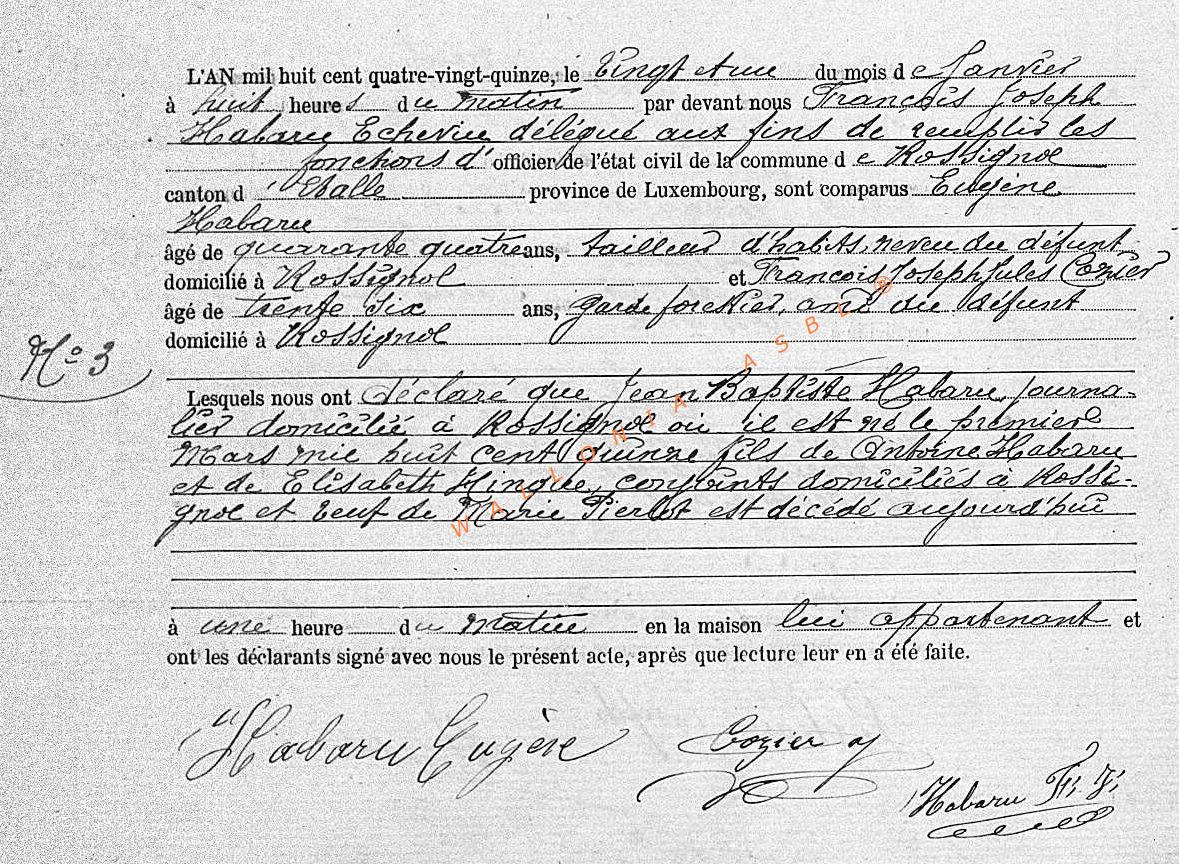 L'AN mil huit cent quatre-vingt-quinze, le Vingt et un du mois de Janvier
à huit heures du matin par devant nous François Joseph
Habaru Echevin délégué aux fins de remplir les
fonctions d'officier de l'état civil de la commune de Rossignol
canton d'Etalle province de Luxembourg, sont comparus Eugène
Habaru
âgé de quarante quatre ans, tailleur d'habits, neveu du défunt
domicilié à Rossignol et François Joseph Jules Cozier
âgé de trente six ans, garde forestier, ami du défunt
domicilié à Rossignol
N° 3
Lesquels nous ont déclaré que Jean Baptiste Habaru, journa-
lier domicilié à Rossignol où il est né le premier
Mars mil huit cent quinze fils de Antoine Habaru
et de Elisabeth Hingue, conjoints domiciliés à Rossi-
gnol et veuf de Marie Pierlot est décédé aujourd'hui
à une heure du matin en la maison lui appartenant et
ont les déclarants signé avec nous le présent acte, après que lecture leur en a été faite.
Habaru Eugène Cozier
Habaru F. J.
WALLONIA ASBL ®